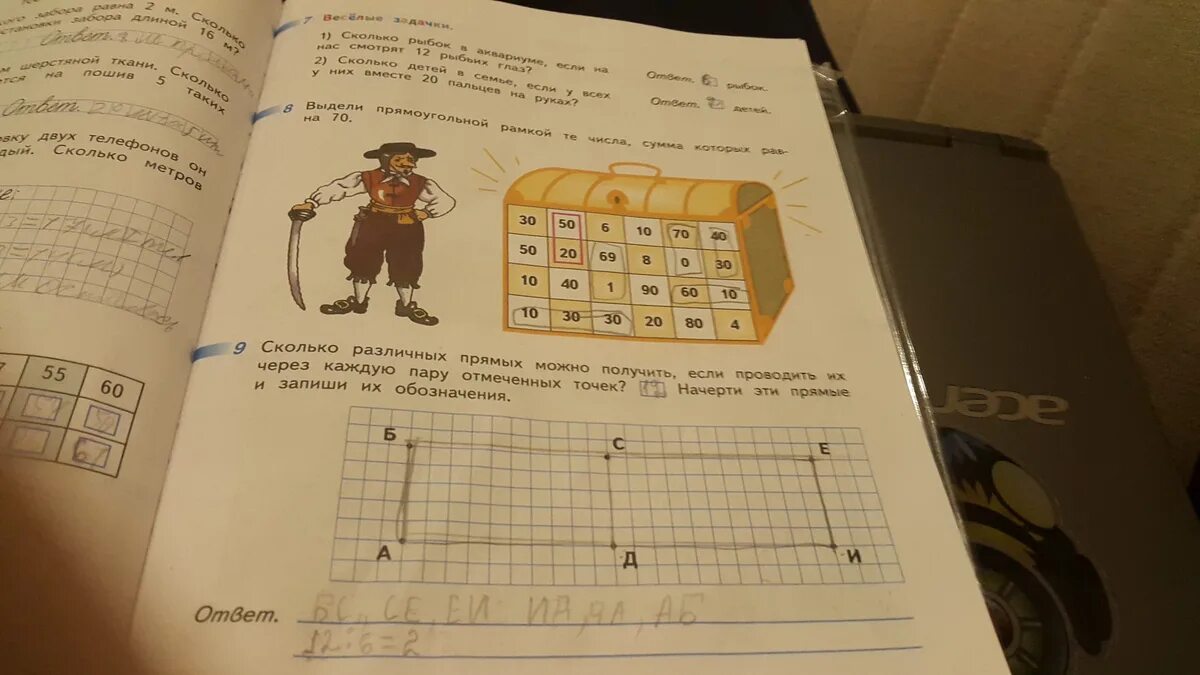 кого забора равна 2 м. Сколько
становки забора длиной 16 м?
Ответ.
м шерстяной ткани. Сколько
ется на пошив 5 таких
Ответ.
овку двух телефонов он
дый. Сколько метров
е:
7 55 60
7 Весёлые задачки.
1) Сколько рыбок в аквариуме, если на
нас смотрят 12 рыбьих глаз?
Ответ. 6 рыбок.
2) Сколько детей в семье, если у всех
у них вместе 20 пальцев на руках?
Ответ. 2 детей.
8 Выдели прямоугольной рамкой те числа, сумма которых рав-
на 70.
30 50 6 10 70 40
50 20 69 8 0 30
10 40 1 90 60 10
10 30 30 20 80 4
9 Сколько различных прямых можно получить, если проводить их
через каждую пару отмеченных точек? Начерти эти прямые
и запиши их обозначения.
Б С Е
А Д И
Ответ. БС, СЕ, ЕИ ИД, ДА, АБ
12:6=2
acer